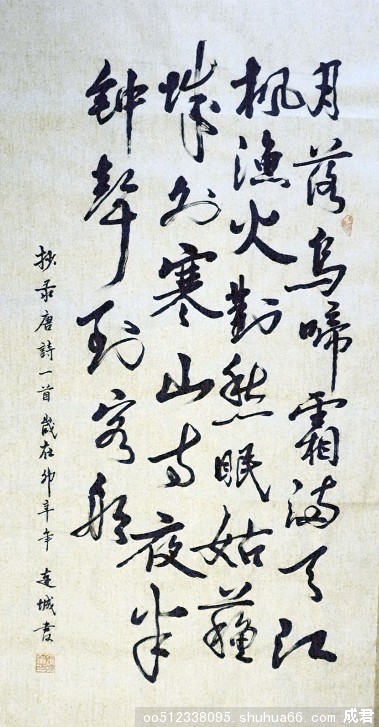 月落烏啼霜满天江
枫漁火對愁眠姑蘇
城外寒山寺夜半
鈡聲到客船
抄录唐詩一首歲在卯辛年 连城書
oo512338095. shuhua66.com 成君